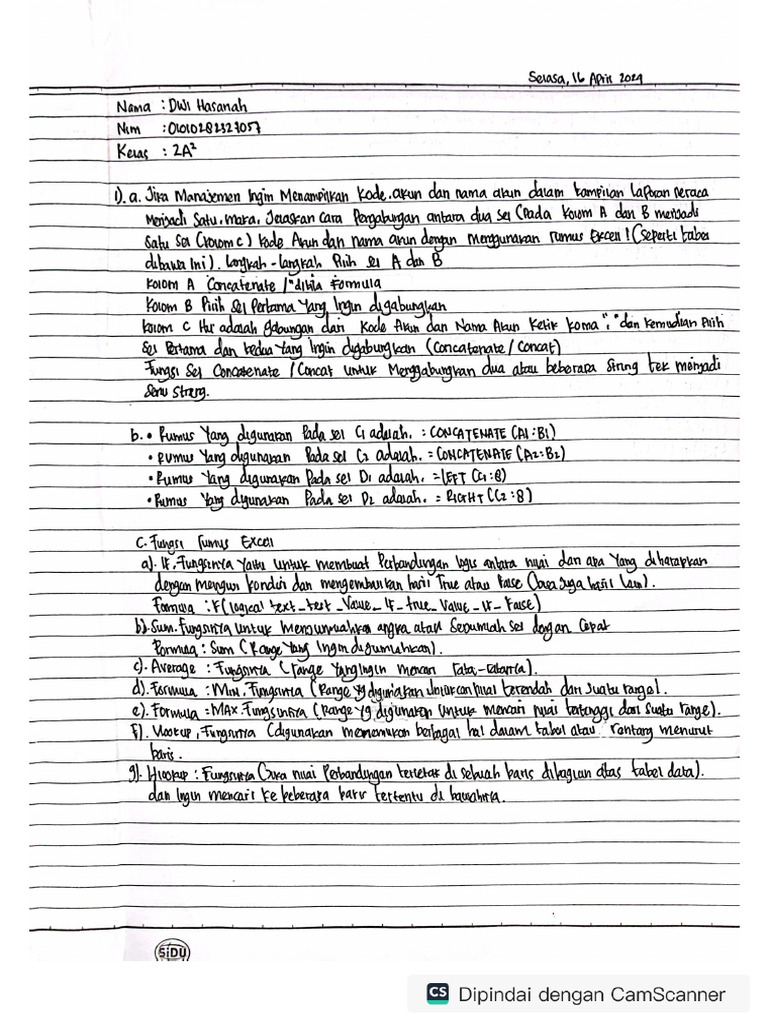 Selasa, 16 April 2024
Nama : Dwi Hasanah
Nim : 01010282327057
Kelas : 2A²
1). a. Jika Manajemen Ingin Menampilkan Kode akun dan nama akun dalam tampilan Laporan neraca
Menjadi Satu. Maka, Jelaskan Cara Pengabungan antara dua sel (Pada Kolom A dan B menjadi
Satu Sel (Kolom C) Kode Akun dan nama akun dengan menggunakan rumus Excell ! (Seperti tabel
dibawa Ini). Langkah-langkah Pilih Sel A dan B
Kolom A Concatenate / Formula
Kolom B Pilih Sel Pertama Yang Ingin digabungkan
Kolom C adalah gabungan dari Kode Akun dan Nama Akun Ketik Koma "," dan Kemudian Pilih
Sel Pertama dan kedua Yang Ingin digabungkan (Concatenate / Concat)
Fungsi Sel Concatenate / Concat untuk Menggabungkan dua atau beberapa String tek menjadi
Satu String.
b. • Rumus Yang digunakan Pada sel C1 adalah. = CONCATENATE (A1:B1)
• Rumus Yang digunakan Pada sel C2 adalah. = CONCATENATE (A2:B2)
• Rumus Yang digunakan Pada sel D1 adalah. = LEFT (C1:8)
• Rumus Yang digunakan Pada sel D2 adalah. = RIGHT (C2:8)
C. Fungsi Rumus Excell
a). IF. Fungsinya Yaitu untuk membuat Perbandungan logis antara nilai dan apa Yang diharapkan
dengan menguji kondisi dan mengembalikan hasil True atau False (bisa Juga hasil lain).
Formula : IF (logical text_test_Value_IF_true_Value_IF_False)
b). Sum. Fungsinya untuk Menjumlahkan angka atau Sejumlah sel dengan Cepat
Formula : Sum (Range Yang Ingin dijumlahkan).
c). Average : Fungsinya (range Yang Ingin mencari rata-ratanya).
d). Formula : Min. Fungsinya (Range yg digunakan nilai terendah dari Suatu range).
e). Formula = MAX. Fungsinya (Range yg digunakan Untuk mencari nilai tertinggi dari Suatu range).
f). Vlookup, Fungsinya (digunakan menemukan berbagai hal dalam tabel atau rentang menurut
baris.
g). Hlookup : Fungsinya (Jika nilai Perbandingan terletak di sebuah baris dibagian atas tabel data).
dan Ingin mencari ke beberapa baris tertentu di bawahnya.
SiDU
CS Dipindai dengan CamScanner